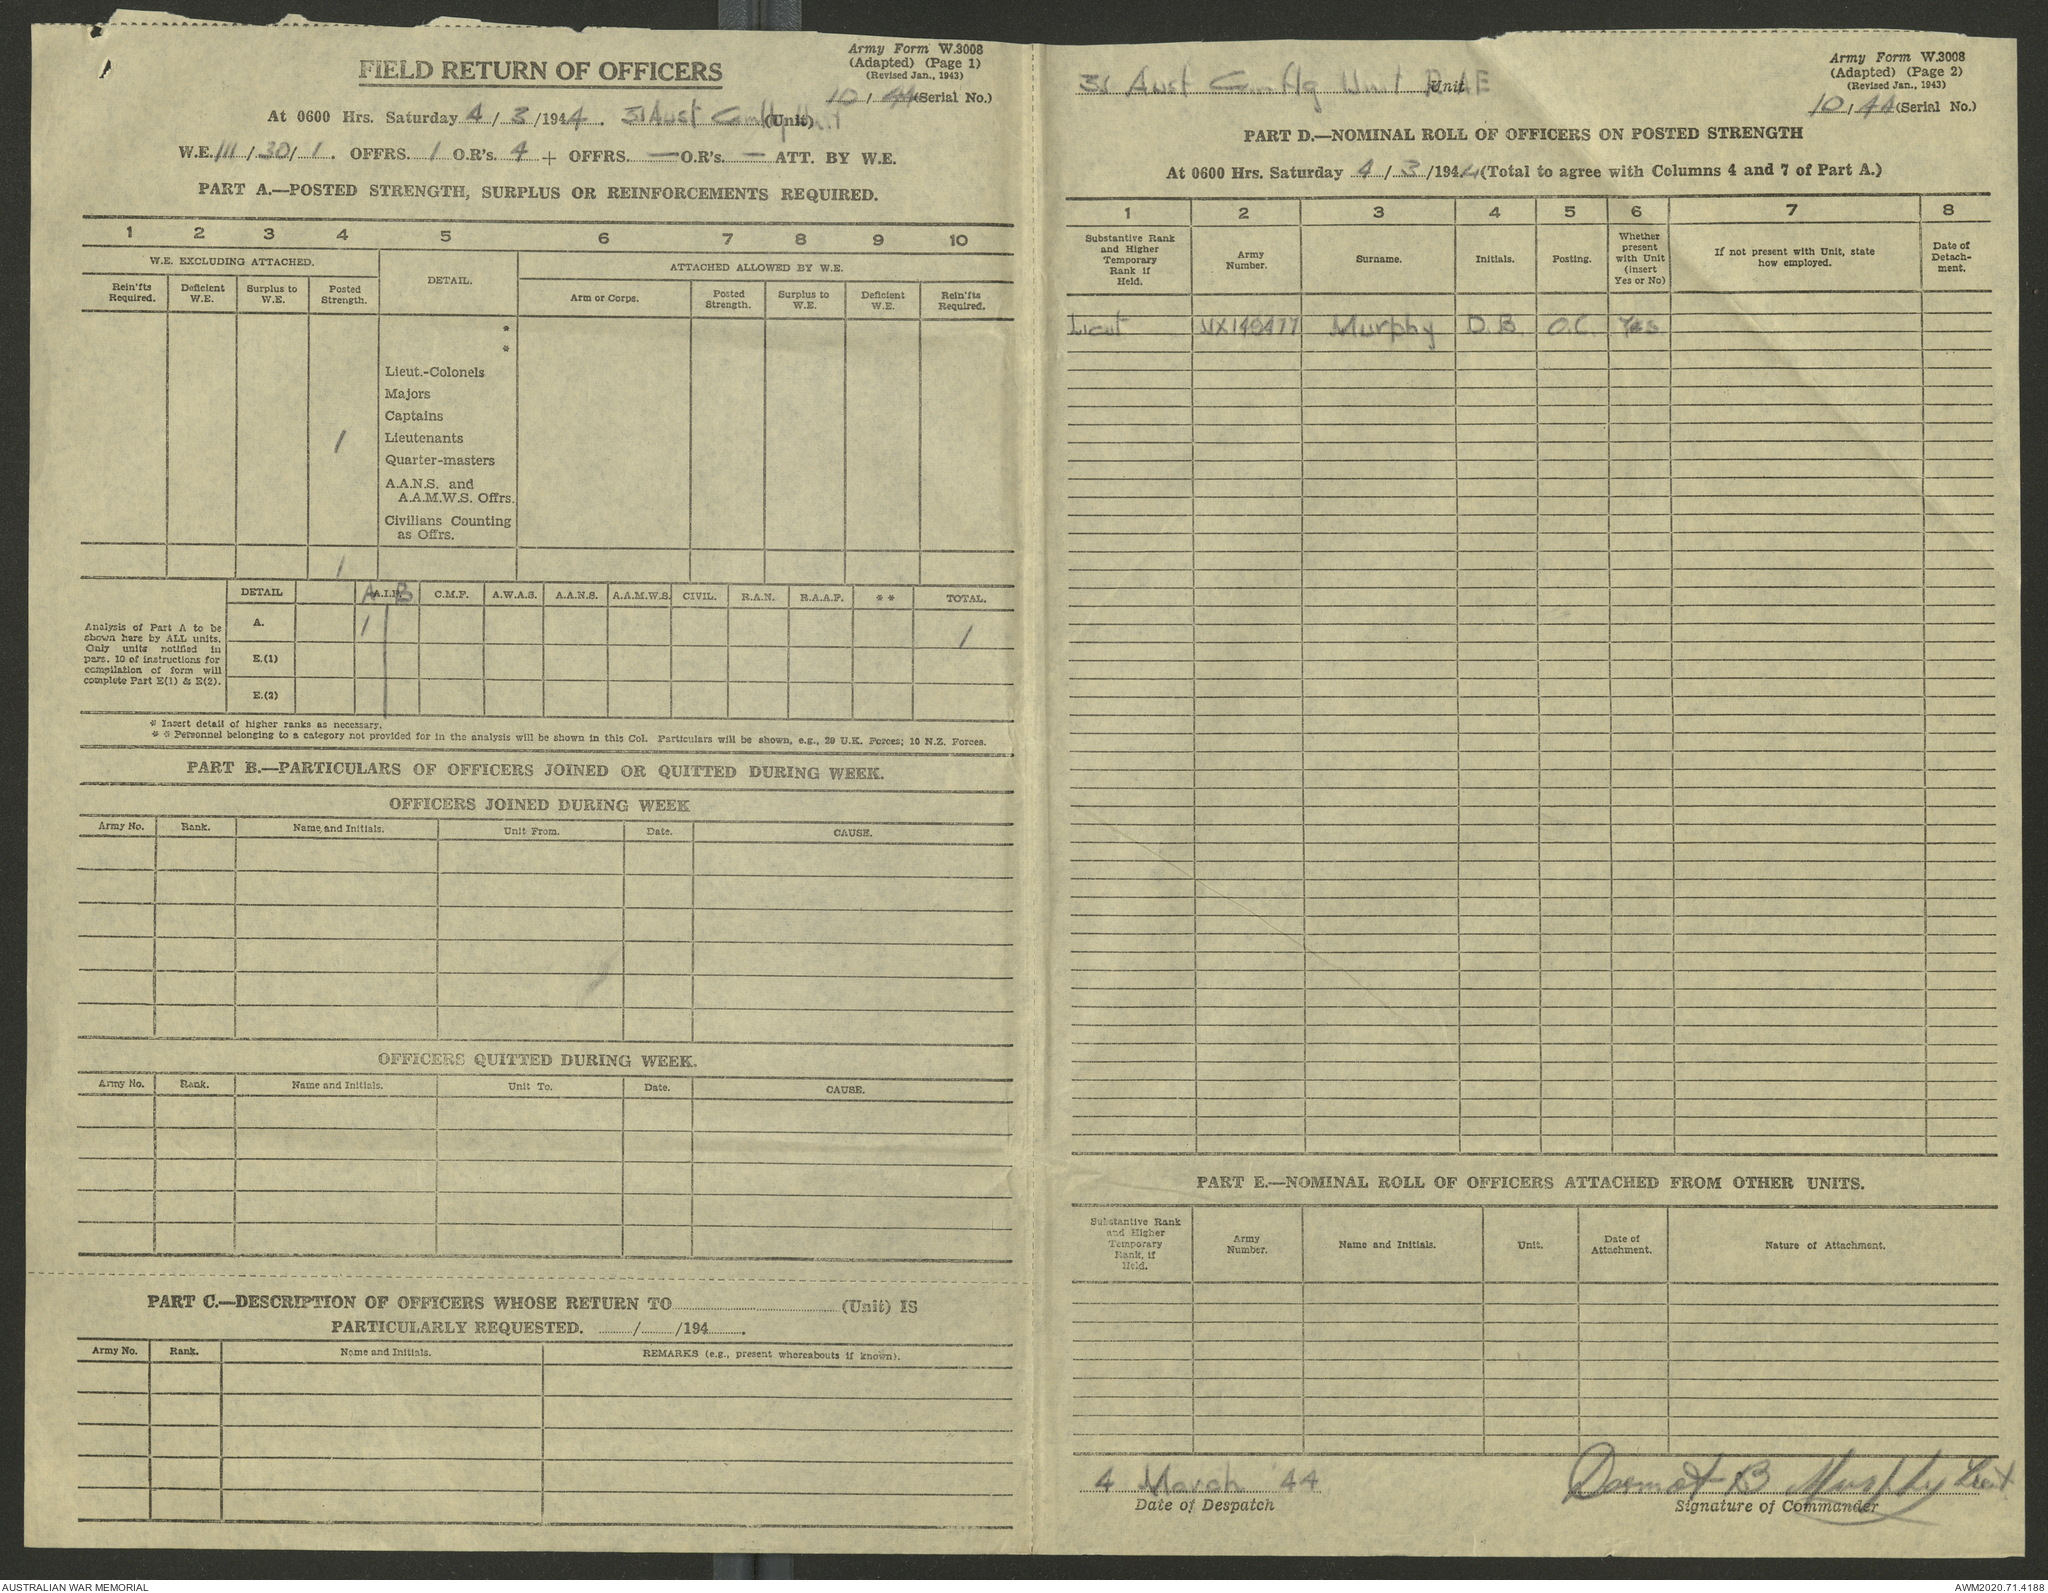 Army Form W.3008
(Adapted) (Page 1)
(Revised Jan., 1943)
FIELD RETURN OF OFFICERS
10/44 (Serial No.)
At 0600 Hrs. Saturday 4/3/1944. 31 Aust Cam Hq Unit (Unit)
W.E. III/30/1. OFFRS. 1 O.R's. 4 + OFFRS. — O.R's. — ATT. BY W.E.
PART A.—POSTED STRENGTH, SURPLUS OR REINFORCEMENTS REQUIRED.
1 2 3 4 5 6 7 8 9 10
W.E. EXCLUDING ATTACHED.
DETAIL.
ATTACHED ALLOWED BY W.E.
Rein'fts Required.
Deficient W.E.
Surplus to W.E.
Posted Strength.
Arm or Corps.
Posted Strength.
Surplus to W.E.
Deficient W.E.
Rein'fts Required.
*
*
Lieut.-Colonels
Majors
Captains
1 Lieutenants
Quarter-masters
A.A.N.S. and
A.A.M.W.S. Offrs.
Civilians Counting
as Offrs.
1
DETAIL A A.I.F. B C.M.F. A.W.A.S. A.A.N.S. A.A.M.W.S. CIVIL. R.A.N. R.A.A.F. * * TOTAL.
Analysis of Part A to be
shown here by ALL units.
Only units notified in
para. 10 of instructions for
compilation of form will
complete Part E(1) & E(2).
A. 1 1
E.(1)
E.(2)
* Insert detail of higher ranks as necessary.
* * Personnel belonging to a category not provided for in the analysis will be shown in this Col. Particulars will be shown, e.g., 20 U.K. Forces; 10 N.Z. Forces.
PART B.—PARTICULARS OF OFFICERS JOINED OR QUITTED DURING WEEK.
OFFICERS JOINED DURING WEEK
Army No. Rank. Name and Initials. Unit From. Date. CAUSE.
OFFICERS QUITTED DURING WEEK.
Army No. Rank. Name and Initials. Unit To. Date. CAUSE.
PART C.—DESCRIPTION OF OFFICERS WHOSE RETURN TO (Unit) IS
PARTICULARLY REQUESTED. / /194 .
Army No. Rank. Name and Initials. REMARKS (e.g., present whereabouts if known).
Army Form W.3008
(Adapted) (Page 2)
(Revised Jan., 1943)
31 Aust Cam Hq Unit RAE Unit
10/44 (Serial No.)
PART D.—NOMINAL ROLL OF OFFICERS ON POSTED STRENGTH
At 0600 Hrs. Saturday 4/3/1944 (Total to agree with Columns 4 and 7 of Part A.)
1 2 3 4 5 6 7 8
Substantive Rank
and Higher
Temporary
Rank if
Held.
Army
Number.
Surname.
Initials.
Posting.
Whether
present
with Unit
(insert
Yes or No)
If not present with Unit, state
how employed.
Date of
Detach-
ment.
Lieut Murphy D.B. O.C. Yes
PART E.—NOMINAL ROLL OF OFFICERS ATTACHED FROM OTHER UNITS.
Substantive Rank
and Higher
Temporary
Rank, if
Held.
Army
Number.
Name and Initials.
Unit.
Date of
Attachment.
Nature of Attachment.
4 March '44
Date of Despatch
Dermot B Murphy Lieut
Signature of Commander
AUSTRALIAN WAR MEMORIAL
AWM2020.71.4188